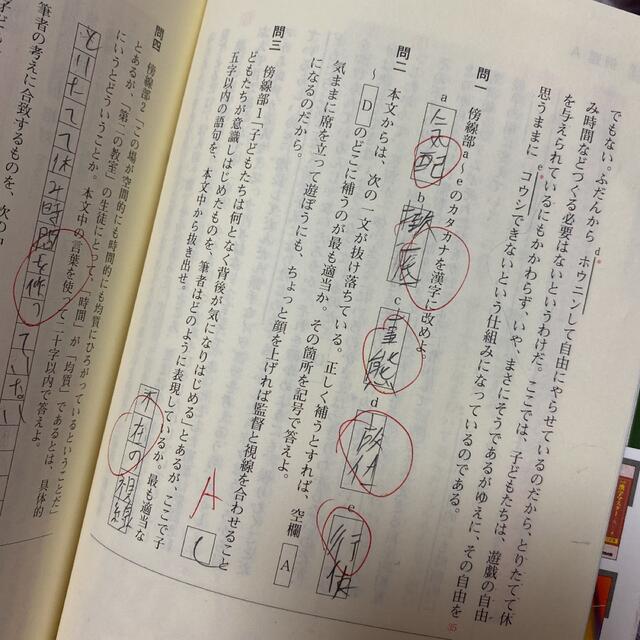 でもない。ふだんから ホウニンして自由にやらせているのだから、とりたてて休
d
み時間などつくる必要はないというわけだ。ここでは、子どもたちは、遊戯の自由
を与えられているにもかかわらず、いや、まさにそうであるがゆえに、その自由を
思うままに コウシできないという仕組みになっているのである。
e
35
問一 傍線部a〜eのカタカナを漢字に改めよ。
a 気配 b 徹底 c 事態 d 放任 e 行使
問二 本文からは、次の一文が抜け落ちている。正しく補うとすれば、空欄 A
〜 D のどこに補うのが最も適当か。その箇所を記号で答えよ。
気ままに席を立って遊ぼうにも、ちょっと顔を上げれば監督と視線を合わせること
になるのだから。
A
C
問三 傍線部1「子どもたちは何となく背後が気になりはじめる」とあるが、ここで子
どもたちが意識しはじめたものを、筆者はどのように表現しているか。最も適当な
五字以内の語句を、本文中から抜き出せ。
不在の視線
問四 傍線部2「この場が空間的にも時間的にも均質にひろがっているということだ」
とあるが、「第二の教室」の生徒にとって、「時間」が「均質」であるとは、具体的
にいうとどういうことか。本文中の言葉を使って二十字以内で答えよ。
とりたてて休み時間を作っていない
筆者の考えに合致するものを、次の中